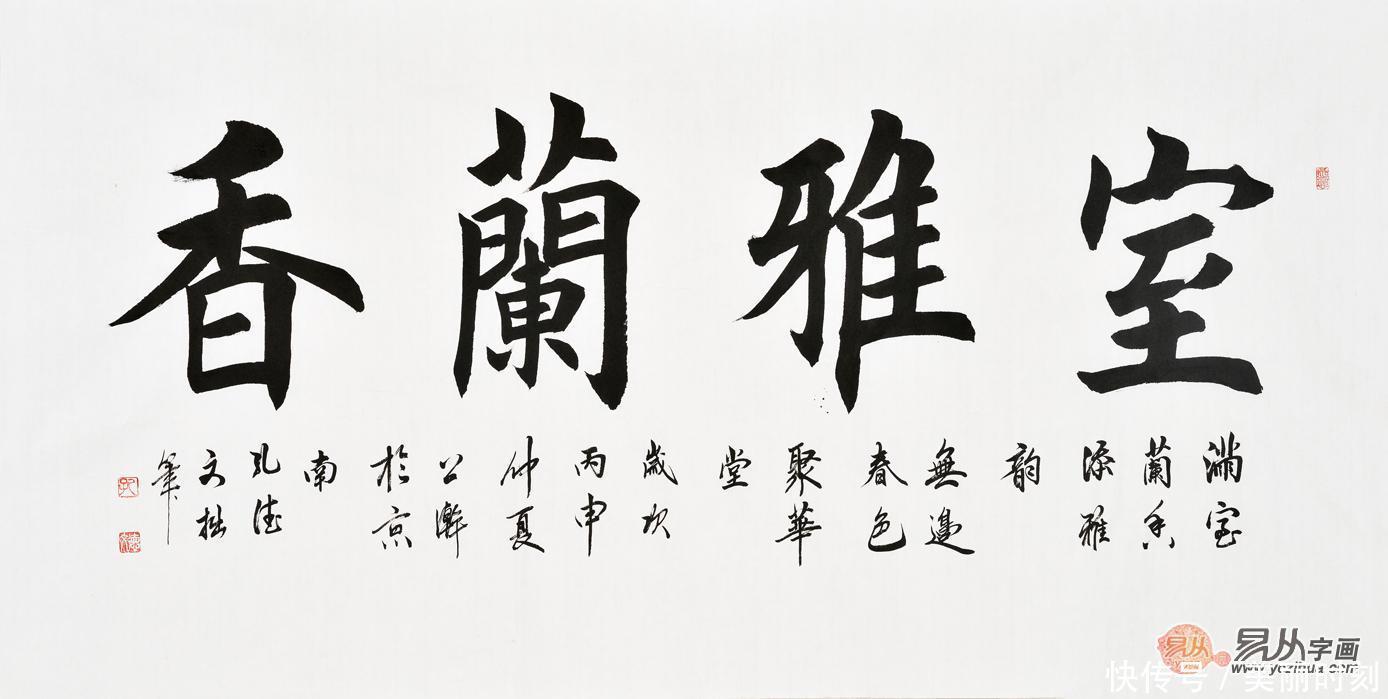 室雅蘭香
滿室
蘭香
添雅
韵
無邊
春色
聚華
堂
歲次
丙申
仲夏
公漸
於京
南
孔德
文拙
筆
易从字画
www.yczihua.com
快传号/美丽时刻